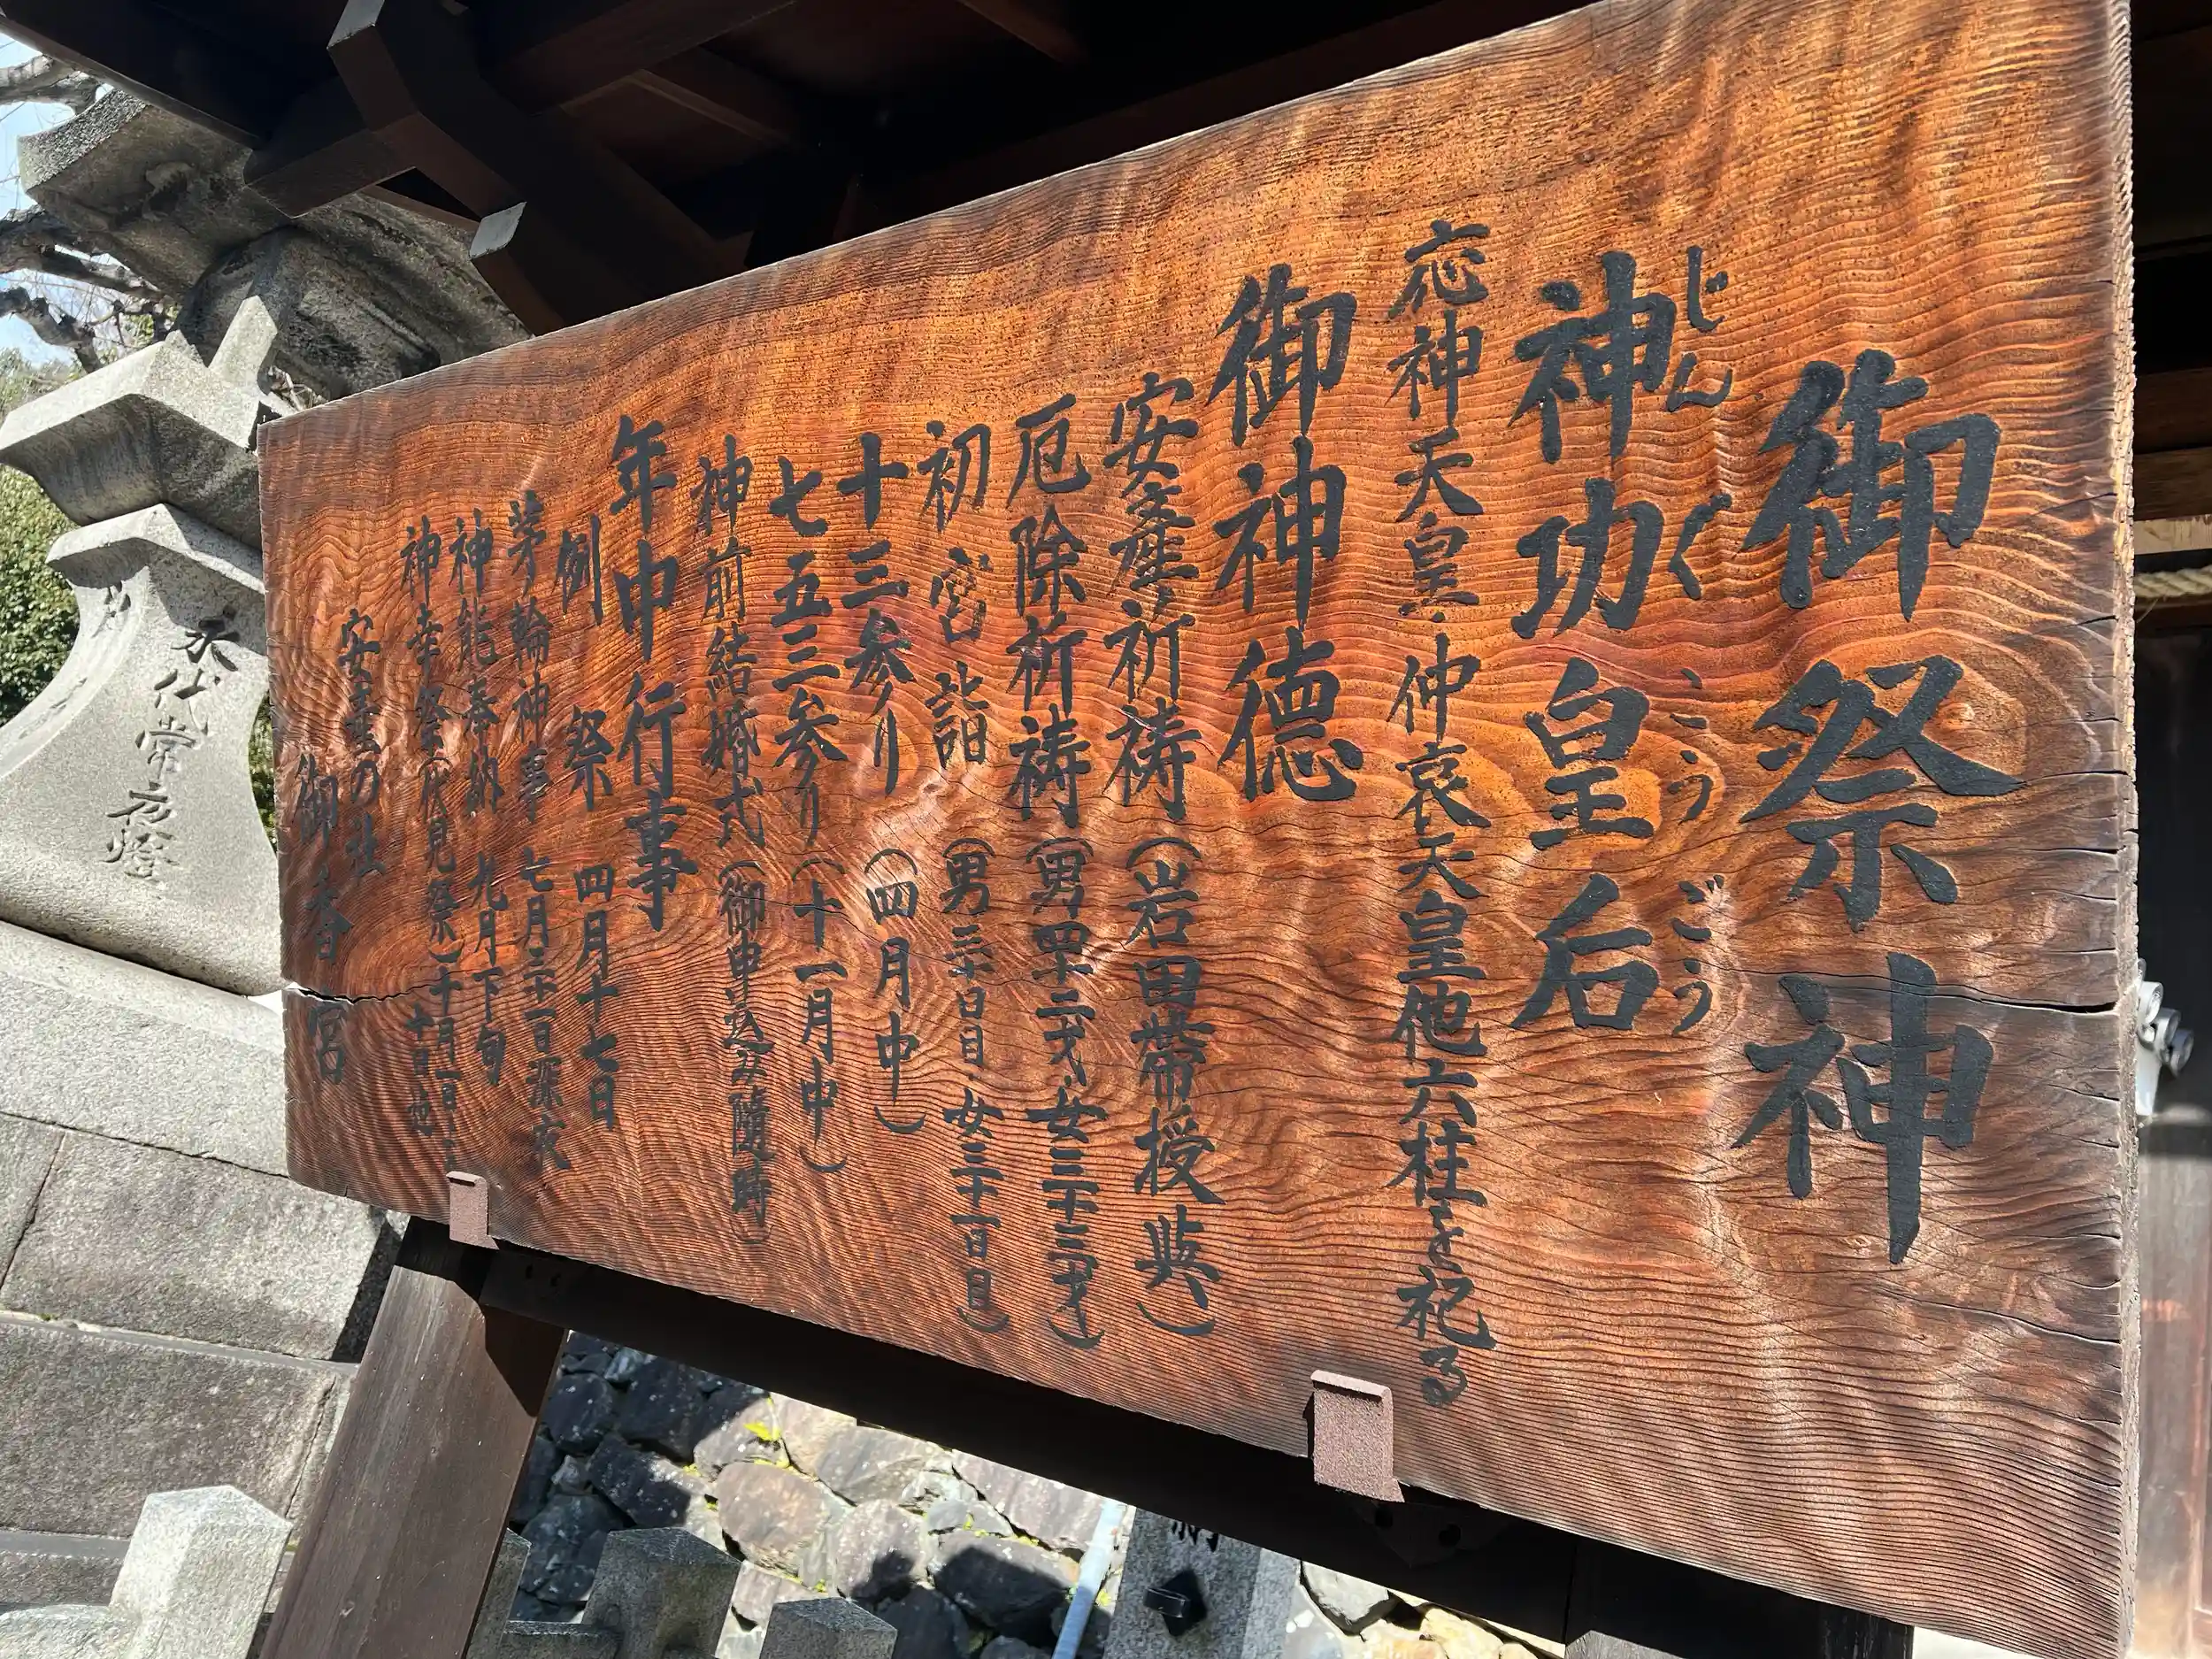 御祭神
じんぐうこうごう
神功皇后
応神天皇・仲哀天皇他六柱を祀る
御神徳
安産祈祷(岩田帯授与)
厄除祈祷(男四十二才・女三十三才)
初宮詣(男三十日目・女三十一日目)
十三参り(四月中)
七五三参り(十一月中)
神前結婚式(御申込み随時)
年中行事
例祭 四月十七日
茅輪神事 七月三十一日深夜
神能奉納 九月下旬
神幸祭(伏見祭)十月一日
十日迄
安産の社
御香宮
永代常夜燈